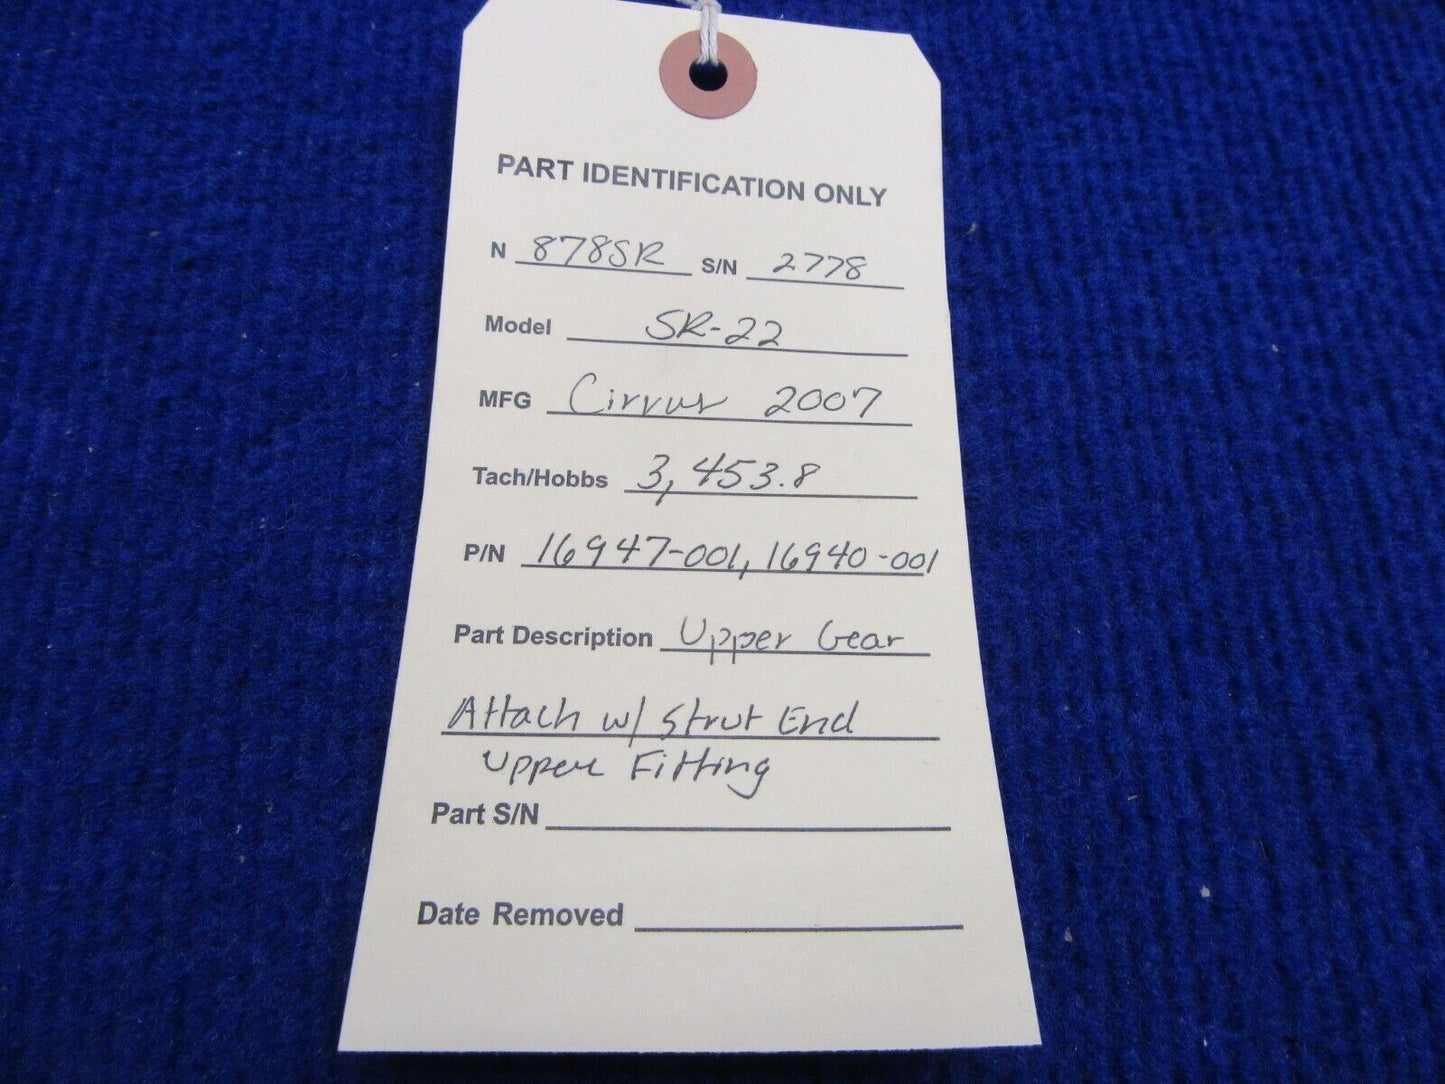 PART IDENTIFICATION ONLY
N 878SR S/N 2778
Model SR-22
MFG Cirrus 2007
Tach/Hobbs 3,453.8
P/N 16947-001, 16940-001
Part Description Upper Gear
Attach w/ Strut End
Upper Fitting
Part S/N
Date Removed